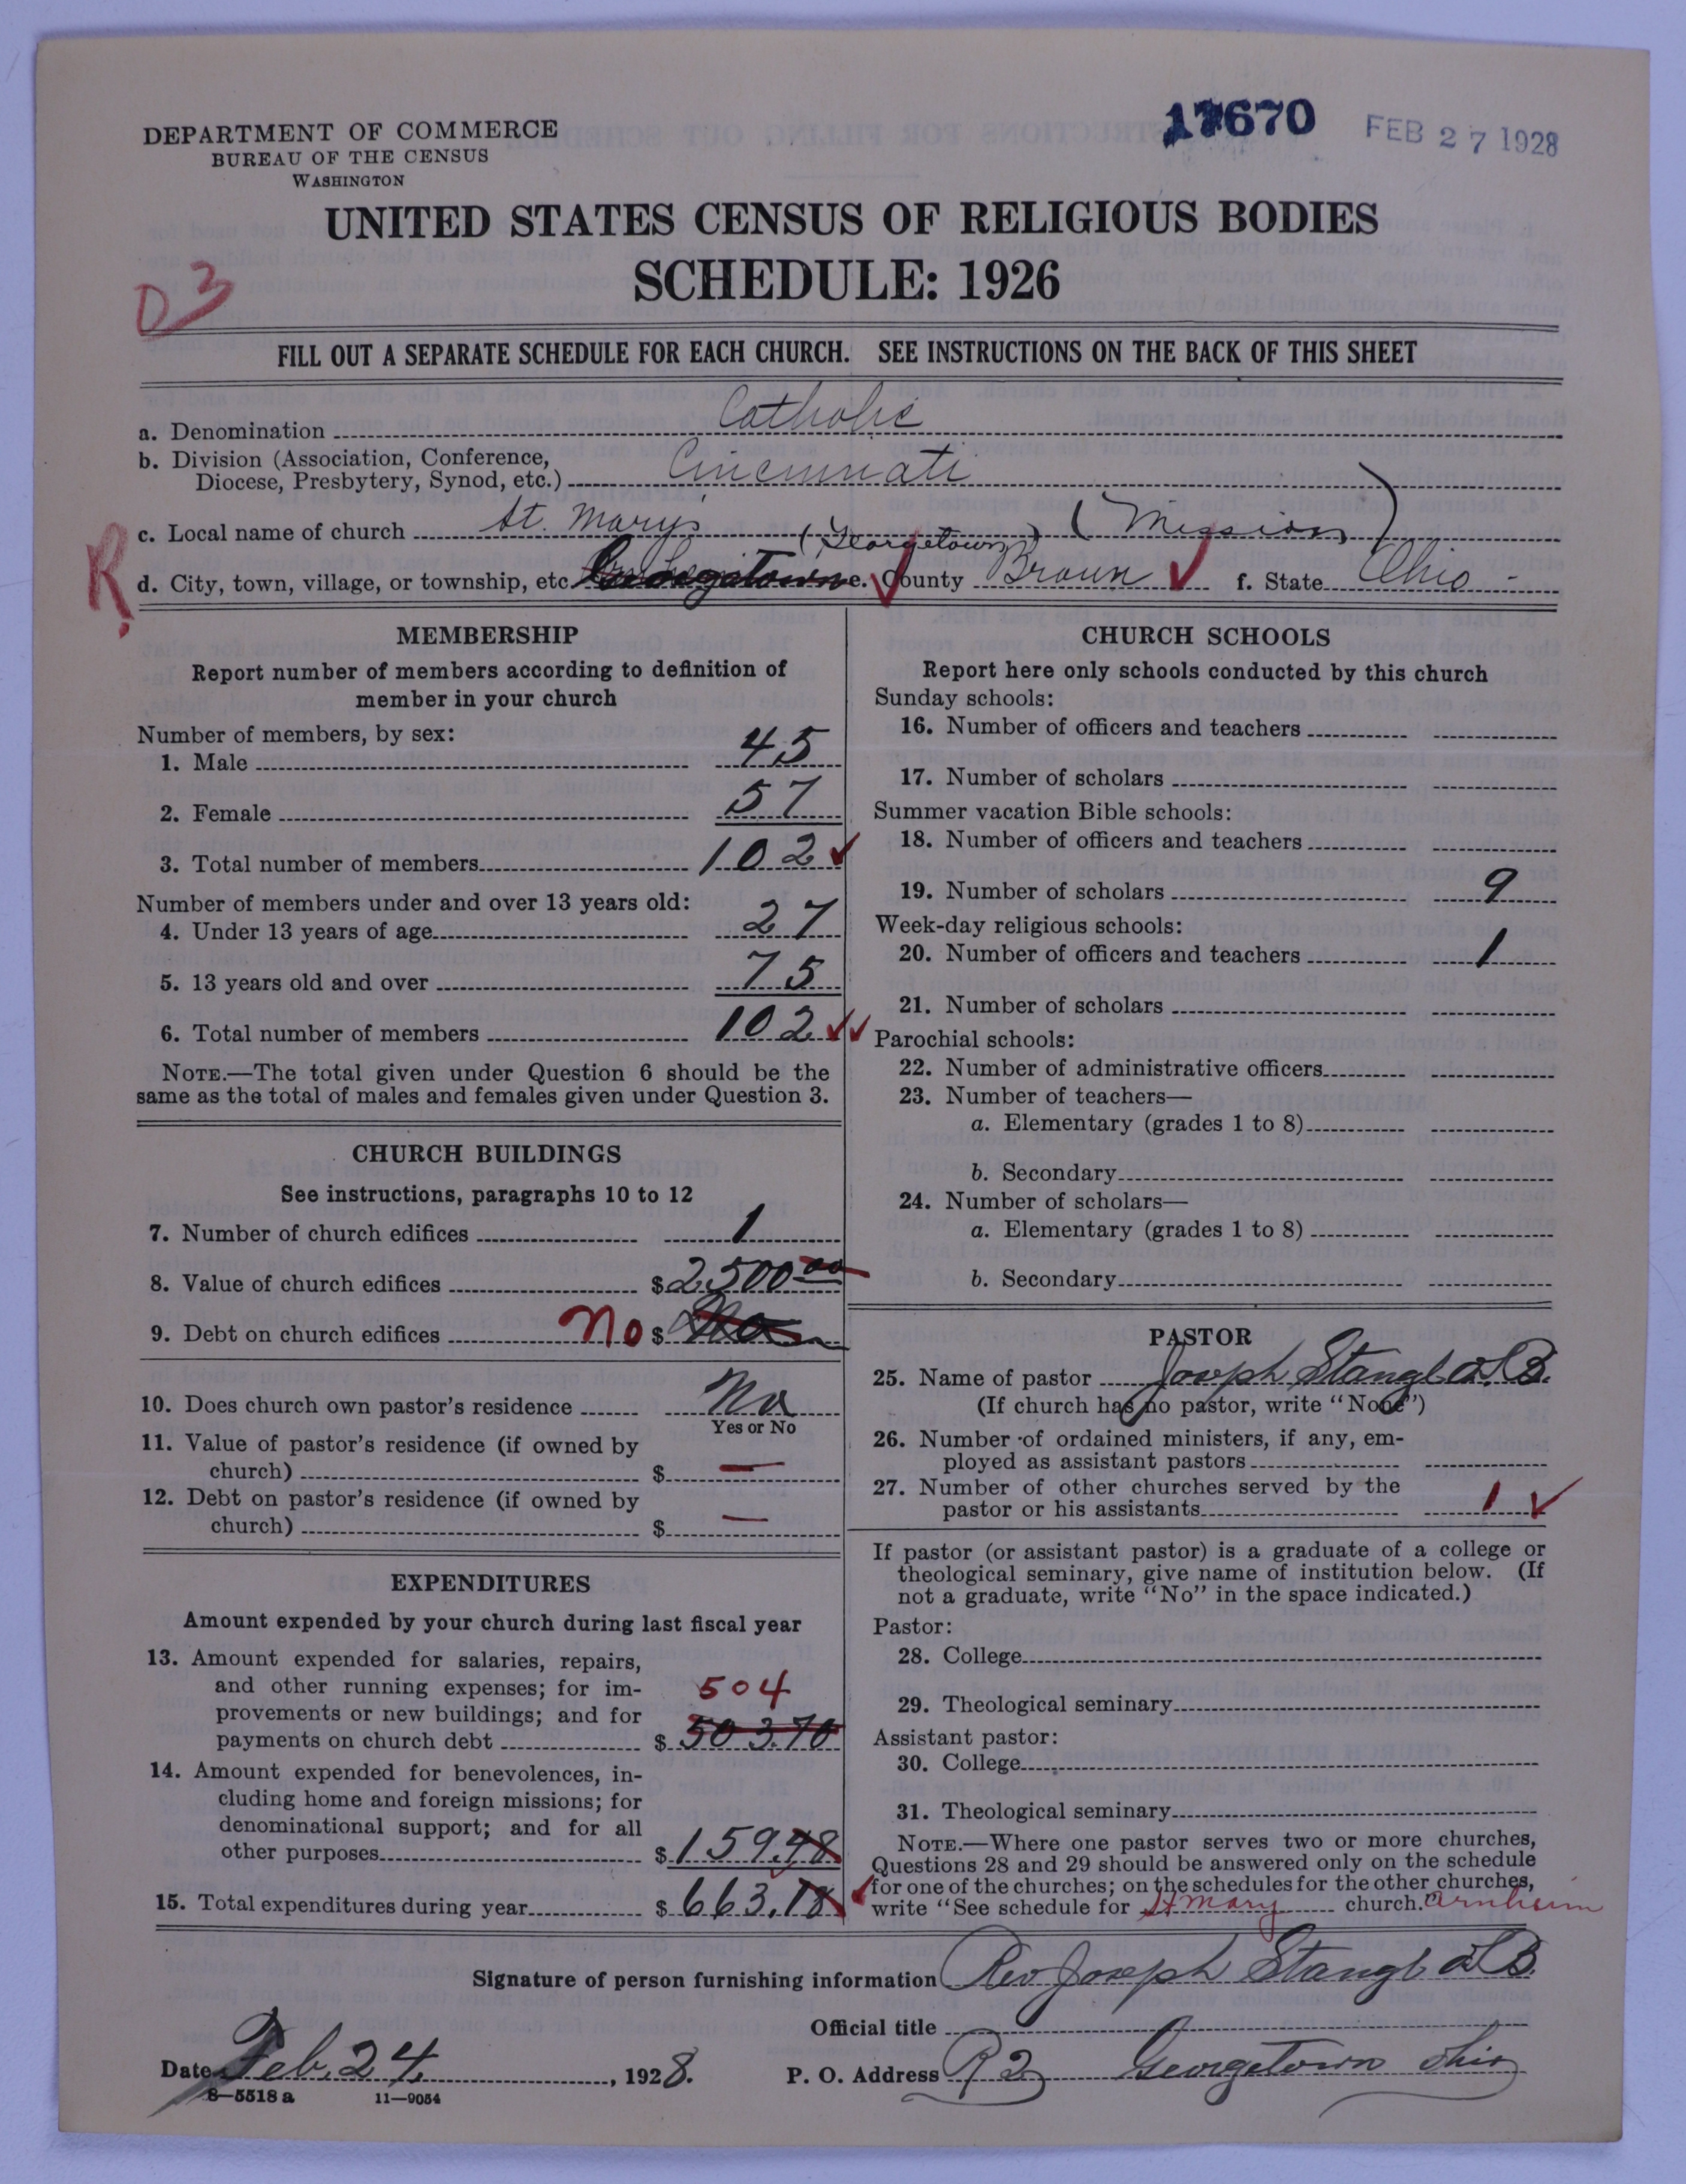 17670 FEB 27 1928
DEPARTMENT OF COMMERCE
BUREAU OF THE CENSUS
WASHINGTON
UNITED STATES CENSUS OF RELIGIOUS BODIES
SCHEDULE: 1926
D3
FILL OUT A SEPARATE SCHEDULE FOR EACH CHURCH. SEE INSTRUCTIONS ON THE BACK OF THIS SHEET
a. Denomination Catholic
b. Division (Association, Conference,
Diocese, Presbytery, Synod, etc.) Cincinnati
c. Local name of church St. Mary's (Georgetown) (Mission)
R. d. City, town, village, or township, etc. Georgetown e. County Brown f. State Ohio
MEMBERSHIP
Report number of members according to definition of
member in your church
Number of members, by sex:
1. Male 45
2. Female 57
3. Total number of members 102
Number of members under and over 13 years old:
4. Under 13 years of age 27
5. 13 years old and over 75
6. Total number of members 102
NOTE.—The total given under Question 6 should be the
same as the total of males and females given under Question 3.
CHURCH BUILDINGS
See instructions, paragraphs 10 to 12
7. Number of church edifices 1
8. Value of church edifices $2500 00
9. Debt on church edifices no $ No
10. Does church own pastor's residence No
Yes or No
11. Value of pastor's residence (if owned by
church) $ —
12. Debt on pastor's residence (if owned by
church) $ —
EXPENDITURES
Amount expended by your church during last fiscal year
13. Amount expended for salaries, repairs,
and other running expenses; for im- 504
provements or new buildings; and for
payments on church debt $ 503.70
14. Amount expended for benevolences, in-
cluding home and foreign missions; for
denominational support; and for all
other purposes $ 159.48
15. Total expenditures during year $ 663.18
CHURCH SCHOOLS
Report here only schools conducted by this church
Sunday schools:
16. Number of officers and teachers
17. Number of scholars
Summer vacation Bible schools:
18. Number of officers and teachers
19. Number of scholars 9
Week-day religious schools:
20. Number of officers and teachers 1
21. Number of scholars
Parochial schools:
22. Number of administrative officers
23. Number of teachers—
a. Elementary (grades 1 to 8)
b. Secondary
24. Number of scholars—
a. Elementary (grades 1 to 8)
b. Secondary
PASTOR
25. Name of pastor Joseph Stangl
(If church has no pastor, write "None")
26. Number of ordained ministers, if any, em-
ployed as assistant pastors
27. Number of other churches served by the
pastor or his assistants 1
If pastor (or assistant pastor) is a graduate of a college or
theological seminary, give name of institution below. (If
not a graduate, write "No" in the space indicated.)
Pastor:
28. College
29. Theological seminary
Assistant pastor:
30. College
31. Theological seminary
NOTE.—Where one pastor serves two or more churches,
Questions 28 and 29 should be answered only on the schedule
for one of the churches; on the schedules for the other churches,
write "See schedule for St Mary church." Arnheim
Signature of person furnishing information Rev Joseph Stangl
Official title
Date Feb. 24, 1928. P. O. Address R 2 Georgetown Ohio
8—5518 a 11—9054